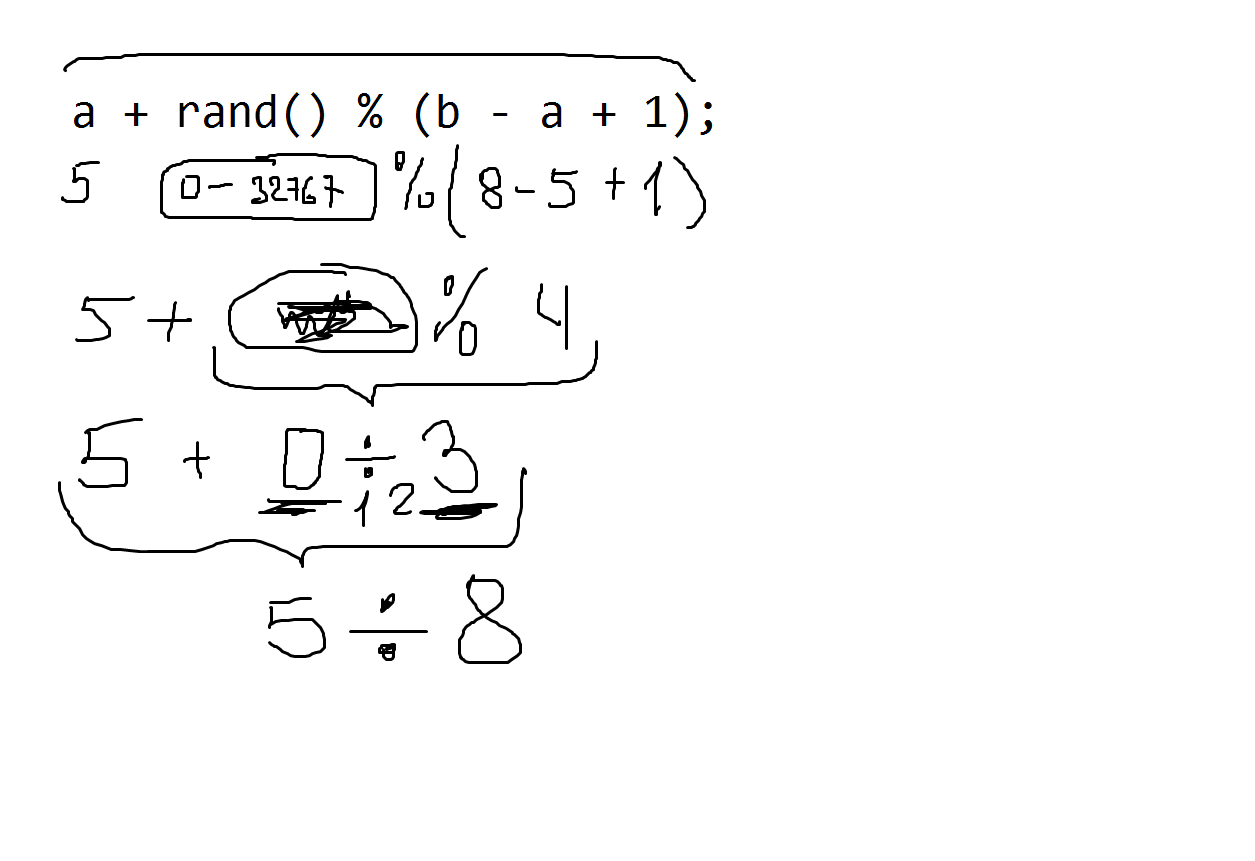 a + rand() % (b - a + 1);
5 0 - 32767 % (8 - 5 + 1)
5 + % 4
5 + 0 ÷ 3
1 2
5 ÷ 8